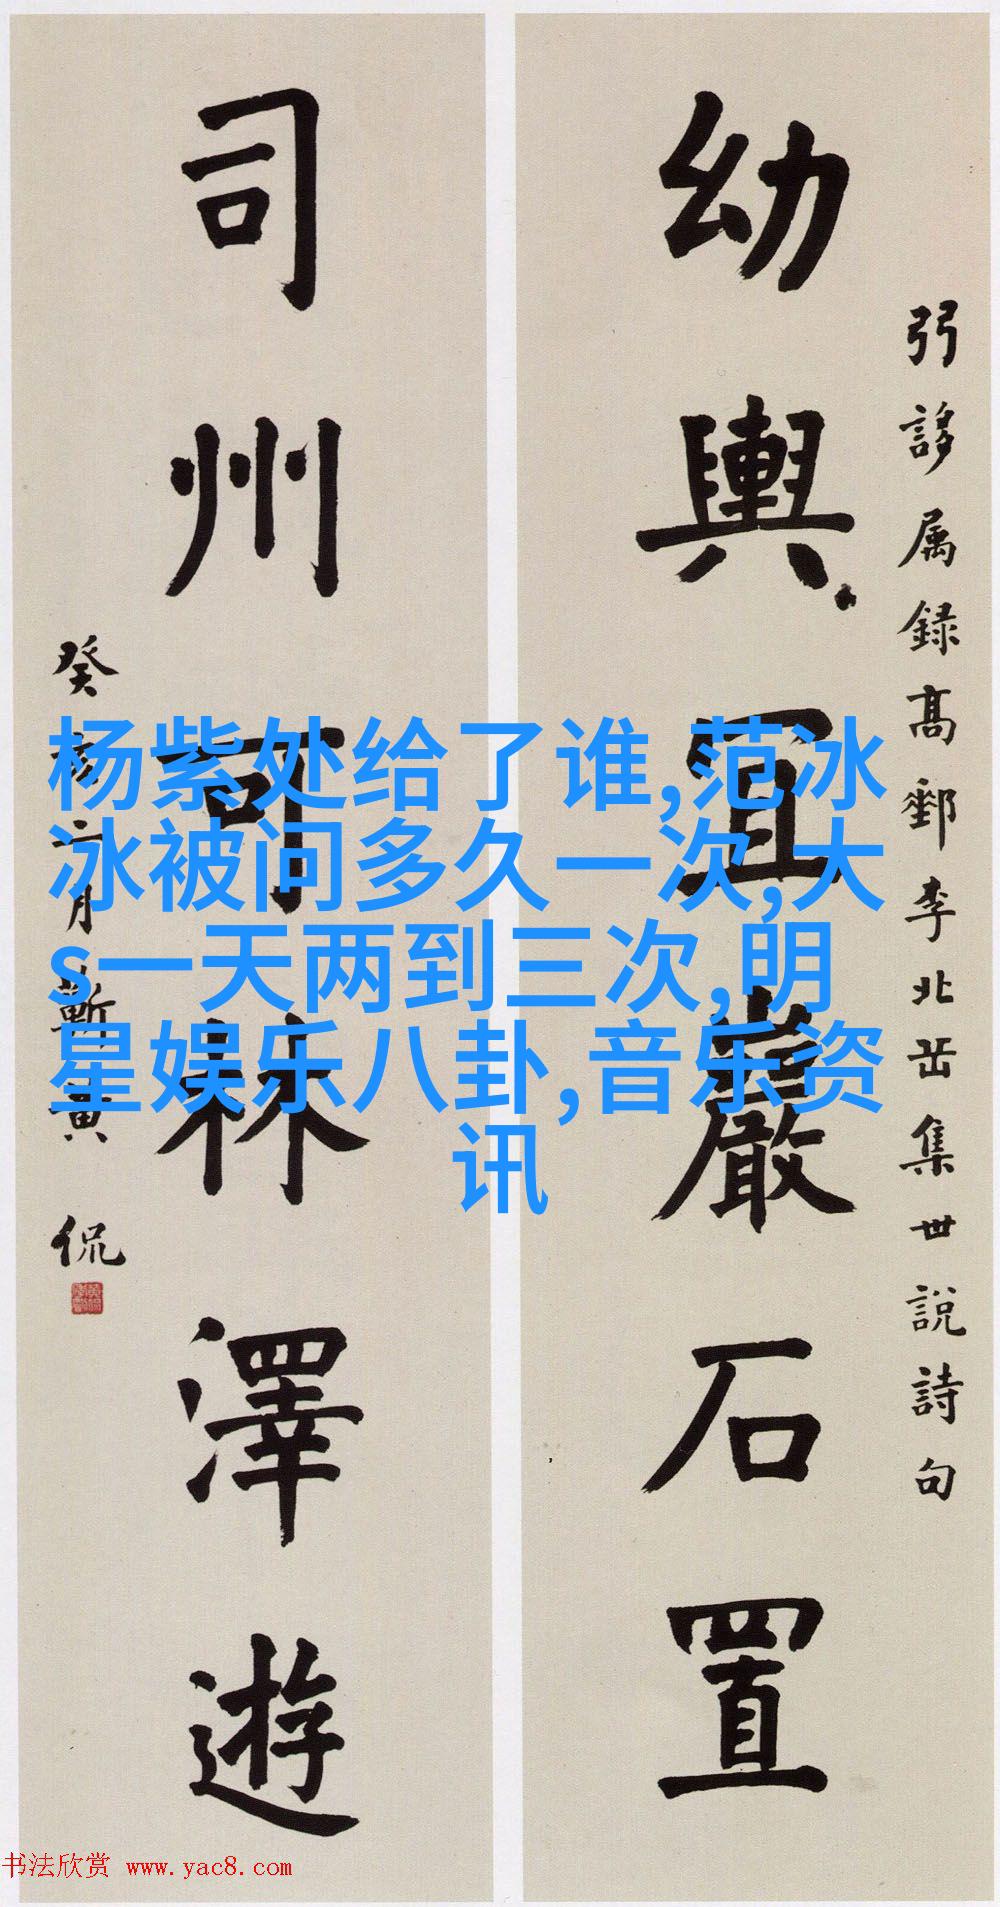 幼輿宜巖石置
弜誃属録高郵李北岳集世說詩句
司州可林澤遊
癸亥二月蘄黄侃
杨紫处给了谁,范冰
冰被问多久一次,大
s一天两到三次,明
星娱乐八卦,音乐资
讯
书法欣赏 www.yac8.com